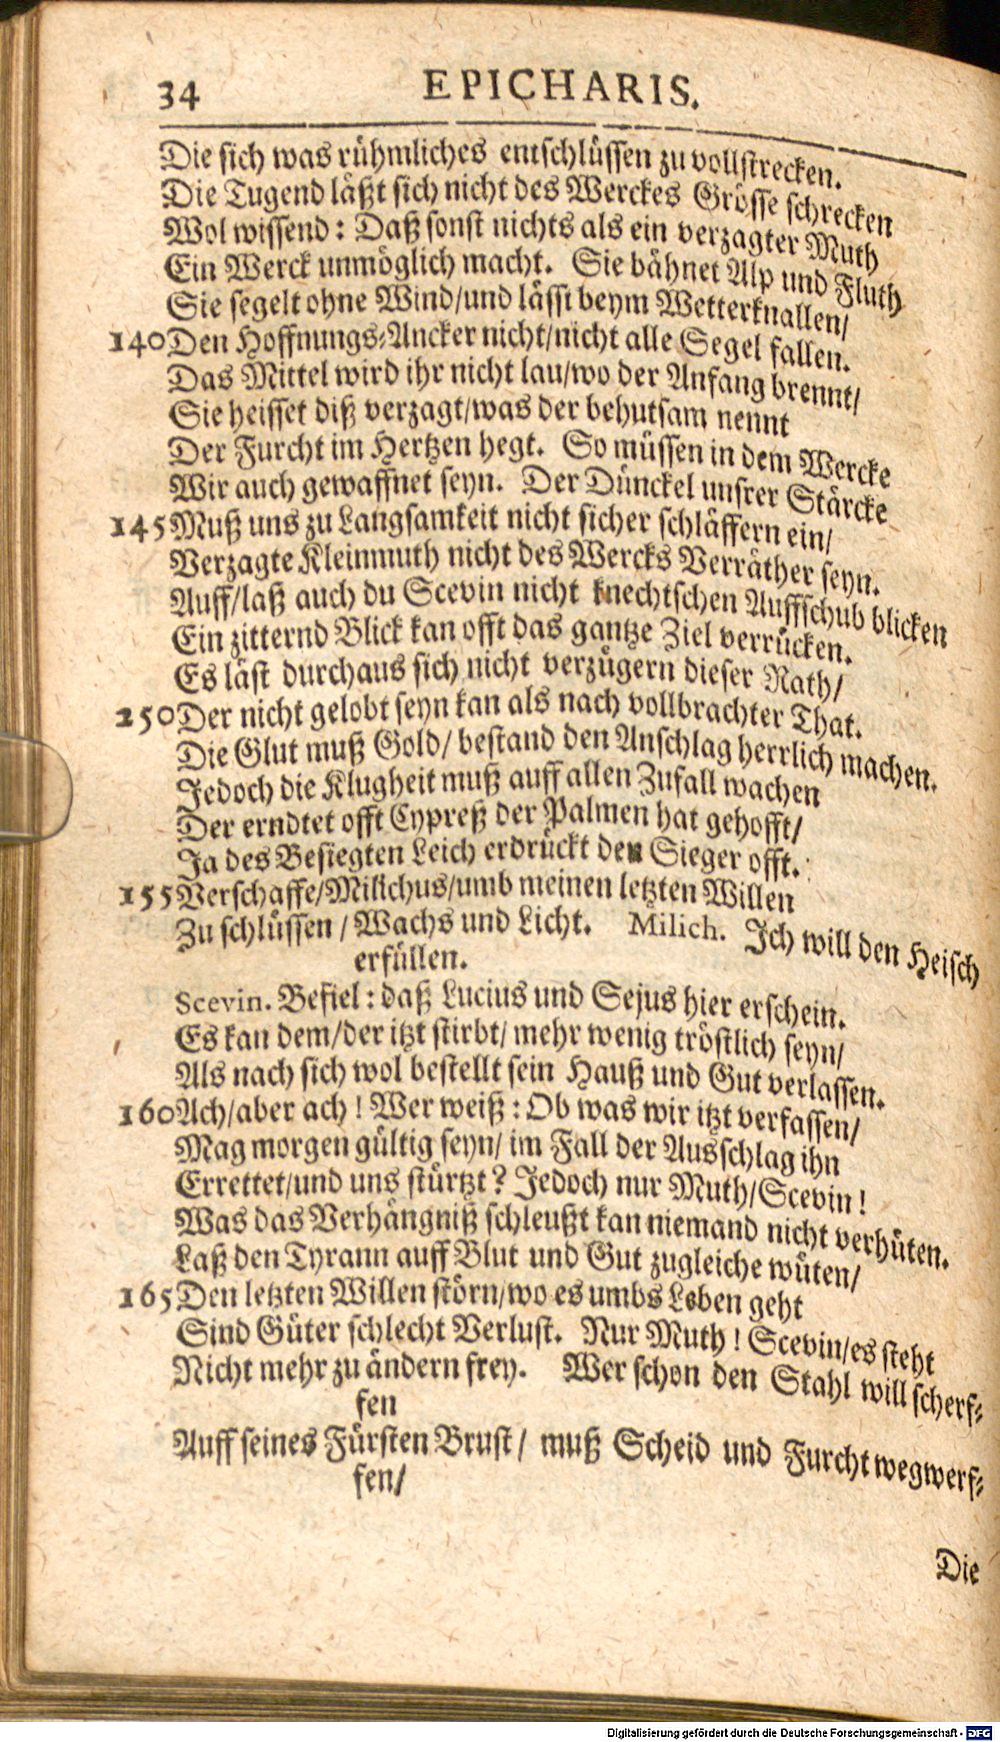 34 EPICHARIS.
Die sich was rühmliches entschlüssen zu vollstrecken.
Die Tugend läßt sich nicht des Werckes Grösse schrecken
Wol wissend: Daß sonst nichts als ein verzagter Muth
Ein Werck unmöglich macht. Sie bähnet Alp und Fluth
Sie segelt ohne Wind/und lässt beym Wetterknallen/
140 Den Hoffnungs-Ancker nicht/nicht alle Segel fallen.
Das Mittel wird ihr nicht lau/wo der Anfang brennt/
Sie heisset diß verzagt/was der behutsam nennt
Der Furcht im Hertzen hegt. So müssen in dem Wercke
Wir auch gewaffnet seyn. Der Dünckel unsrer Stärcke
145 Muß uns zu Langsamkeit nicht sicher schläffern ein/
Verzagte Kleinmuth nicht des Wercks Verräther seyn.
Auff/laß auch du Scevin nicht knechtschen Auffschub blicken
Ein zitternd Blick kan offt das gantze Ziel verrücken.
Es läst durchaus sich nicht verzügern dieser Rath/
250 Der nicht gelobt seyn kan als nach vollbrachter That.
Die Glut muß Gold/ bestand den Anschlag herrlich machen.
Jedoch die Klugheit muß auff allen Zufall wachen
Der erndtet offt Cypreß der Palmen hat gehofft/
Ja des Besiegten Leich erdrückt den Sieger offt.
155 Verschaffe/Milichus/umb meinen letzten Willen
Zu schlüssen / Wachs und Licht. Milich. Ich will den Heisch
erfüllen.
Scevin. Befiel: daß Lucius und Sejus hier erschein.
Es kan dem/der itzt stirbt/ mehr wenig tröstlich seyn/
Als nach sich wol bestellt sein Hauß und Gut verlassen.
160 Ach/aber ach! Wer weiß: Ob was wir itzt verfassen/
Mag morgen gültig seyn/ im Fall der Ausschlag ihn
Errettet/und uns stürtzt? Jedoch nur Muth/Scevin!
Was das Verhängniß schleußt kan niemand nicht verhüten.
Laß den Tyrann auff Blut und Gut zugleiche wüten/
165 Den letzten Willen störn/wo es umbs Leben geht
Sind Güter schlecht Verlust. Nur Muth! Scevin/es steht
Nicht mehr zu ändern frey. Wer schon den Stahl will scherf-
fen
Auff seines Fürsten Brust/ muß Scheid und Furcht wegwerf-
fen/
Die
Digitalisierung gefördert durch die Deutsche Forschungsgemeinschaft - DFG